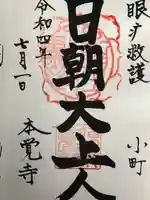 眼疾救護
小町
日朝大上人
令和四年
七月一日
本覚寺